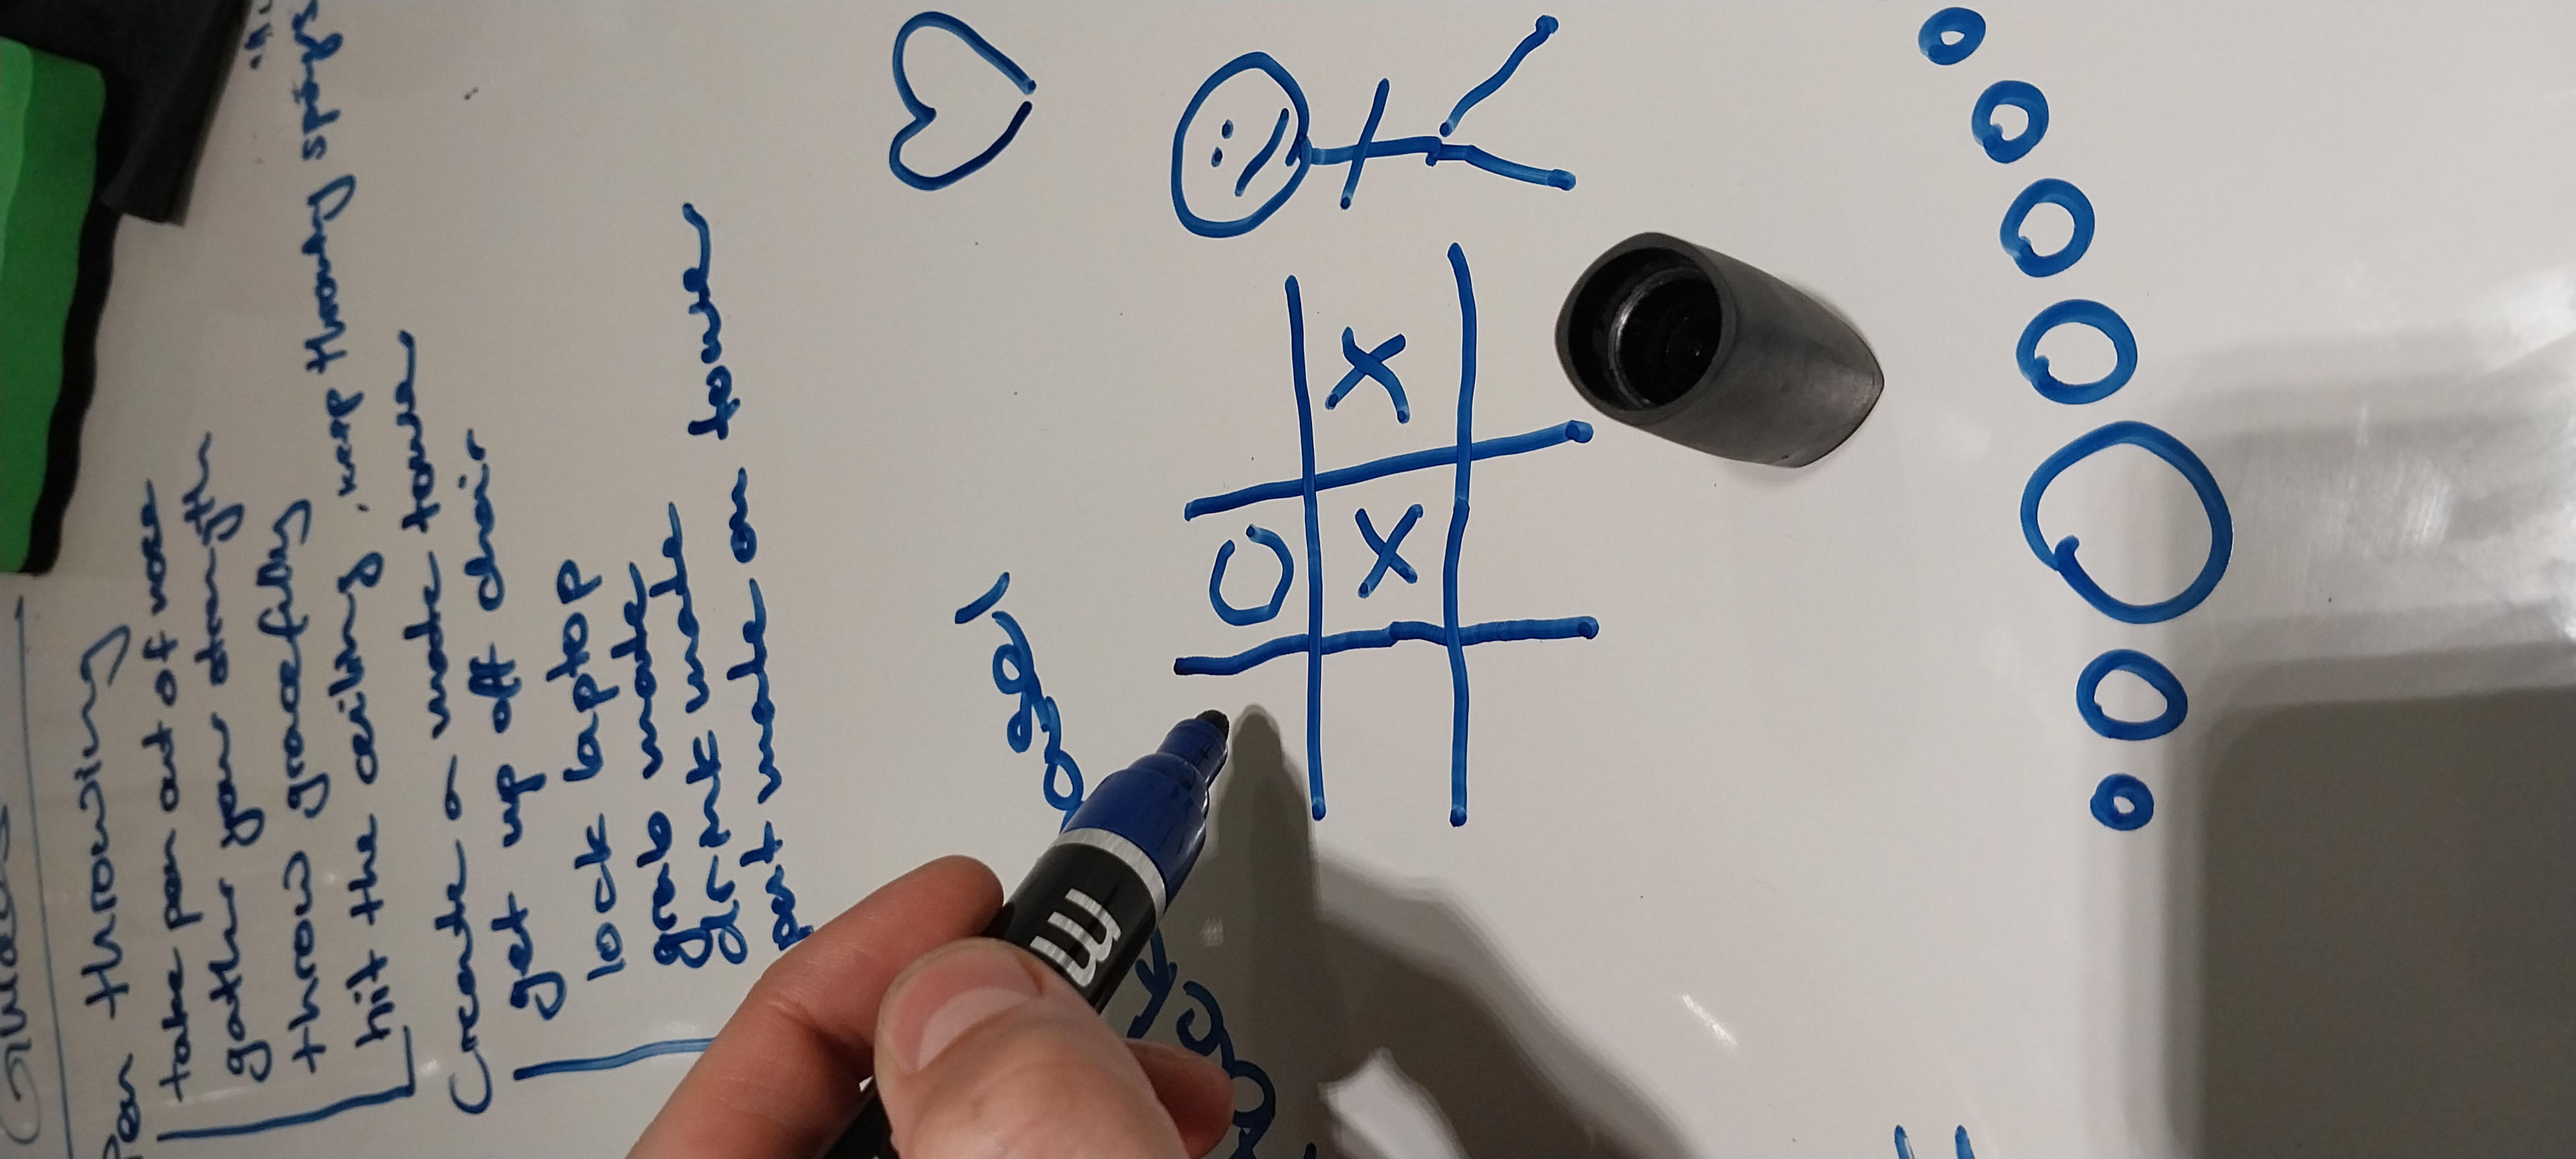 Guides
Pen throwing
take pen out of nose
gather your strength
throw gracefully
hit the ceiling, keep throwing
Create a mate tower
get up off chair
lock laptop
grab mate
drink mate
put mate on tower
O
X X